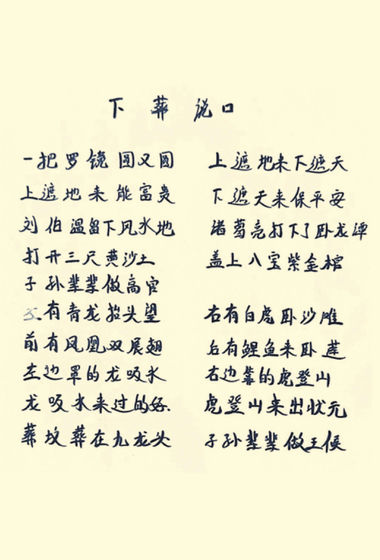 下葬说口
一把罗镜圆又圆 上遮地来下遮天
上遮地来能富贵 下遮天来保平安
刘伯温留下风水地 诸葛亮打下了卧龙潭
打开三尺黄沙土 盖上八宝紫金棺
子孙辈辈做高官
有青龙抬头望 右有白虎卧沙滩
前有凤凰双展翅 后有鲤鱼来卧莲
左边罩的龙吸水 右边靠的虎登山
龙吸水来过的好. 虎登山来出状元
葬坟葬在九龙头 子孙辈辈做王侯